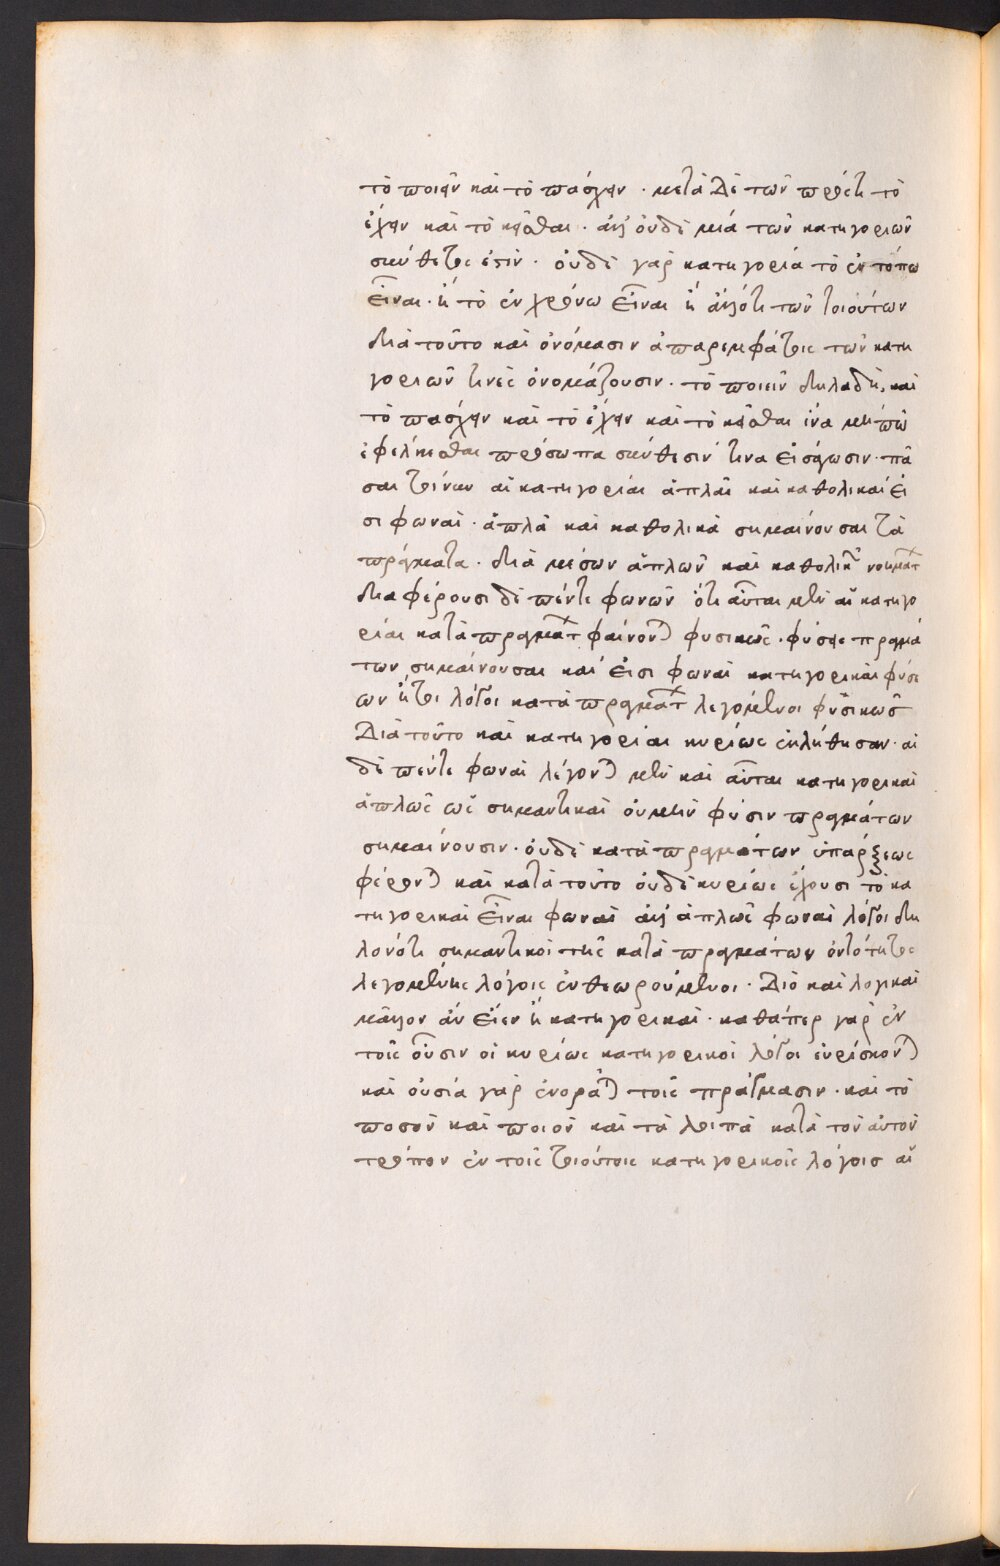 τὸ ποιεῖν καὶ τὸ πάσχειν · μετὰ δὲ τῶν πρός τι τὸ
ἔχειν καὶ τὸ κεῖσθαι · ἀλλ' οὐδὲ μιά τῶν κατηγοριῶν
σύνθετος ἐστίν · οὐδὲ γὰρ κατηγορία τὸ ἐν τόπω
εἶναι · ἢ τὸ ἐν χρόνω εἶναι ἢ ἄλλό τι τῶν τοιούτων
διὰ τοῦτο καὶ ὀνόμασιν ἀπαρεμφάτοις τῶν κατη
γοριῶν τινὲς ὀνομάζουσιν · τὸ ποιεῖν δηλαδὴ, καὶ
τὸ πάσχειν καὶ τὸ ἔχειν καὶ τὸ κεῖσθαι ἵνα μήπω
ἐφελκίεσθαι πρόσωπα σύνθεσίν τινα εἰσάγωσιν · πᾶ
σαι τοίνυν αἱ κατηγορίαι ἁπλαῖ καὶ καθολικαί εἰ
σι φωναὶ · ἁπλᾶ καὶ καθολικὰ σημαίνουσαι τὰ
πράγματα · διὰ μέσων ἁπλῶν καὶ καθολικ νοημάτ
διαφέρουσι δὲ πέντε φωνῶν ὅτι αὗται μὲν αἱ κατηγο
ρίαι κατὰ πραγμάτ φαίνον) φυσικῶς · φύσεις πραγμά
των σημαίνουσαι καί εἰσι φωναὶ κατηγορικαὶ φύσε
ων ἤτοι λόγοι κατὰ πραγμάτ λεγόμενοι φύσικῶς
Διὰ τοῦτο καὶ κατηγορίαι κυρίως ἐκλήθησαν · αἱ
δὲ πέντε φωναὶ λέγον) μὲν καὶ αὗται κατηγορικαὶ
ἁπλῶς ὡς σημαντικαὶ οὐ μὴν φύσιν πραγμάτων
σημαίνουσιν · οὐδὲ κατὰ πραγμάτων ὑπάρξεως
φέρον) καὶ κατὰ τοῦτο οὐδὲ κυρίως ἔχουσι τὸ κα
τηγορικαὶ εἶναι φωναὶ ἀλλ' ἁπλῶς φωναὶ λόγοι δη
λονότι σημαντικοὶ τῆς κατὰ πραγμάτων ὀντότητος
λεγομένης λόγοις ἐνθεωρούμενοι · Διὸ καὶ λογικαὶ
μᾶλλον ἂν εἶεν ἢ κατηγορικαὶ · καθάπερ γὰρ ἐν
τοῖς οὖσιν οἱ κυρίως κατηγορικοὶ λόγοι εὑρίσκον)
καὶ οὐσία γὰρ ἐνορᾶ) τοῖς πράγμασιν · καὶ τὸ
ποσὸν καὶ ποιὸν καὶ τὰ λοιπὰ κατὰ τὸν αὐτὸν
τρόπον ἐν τοῖς τοιούτοις κατηγορικοῖς λόγοισ αἱ